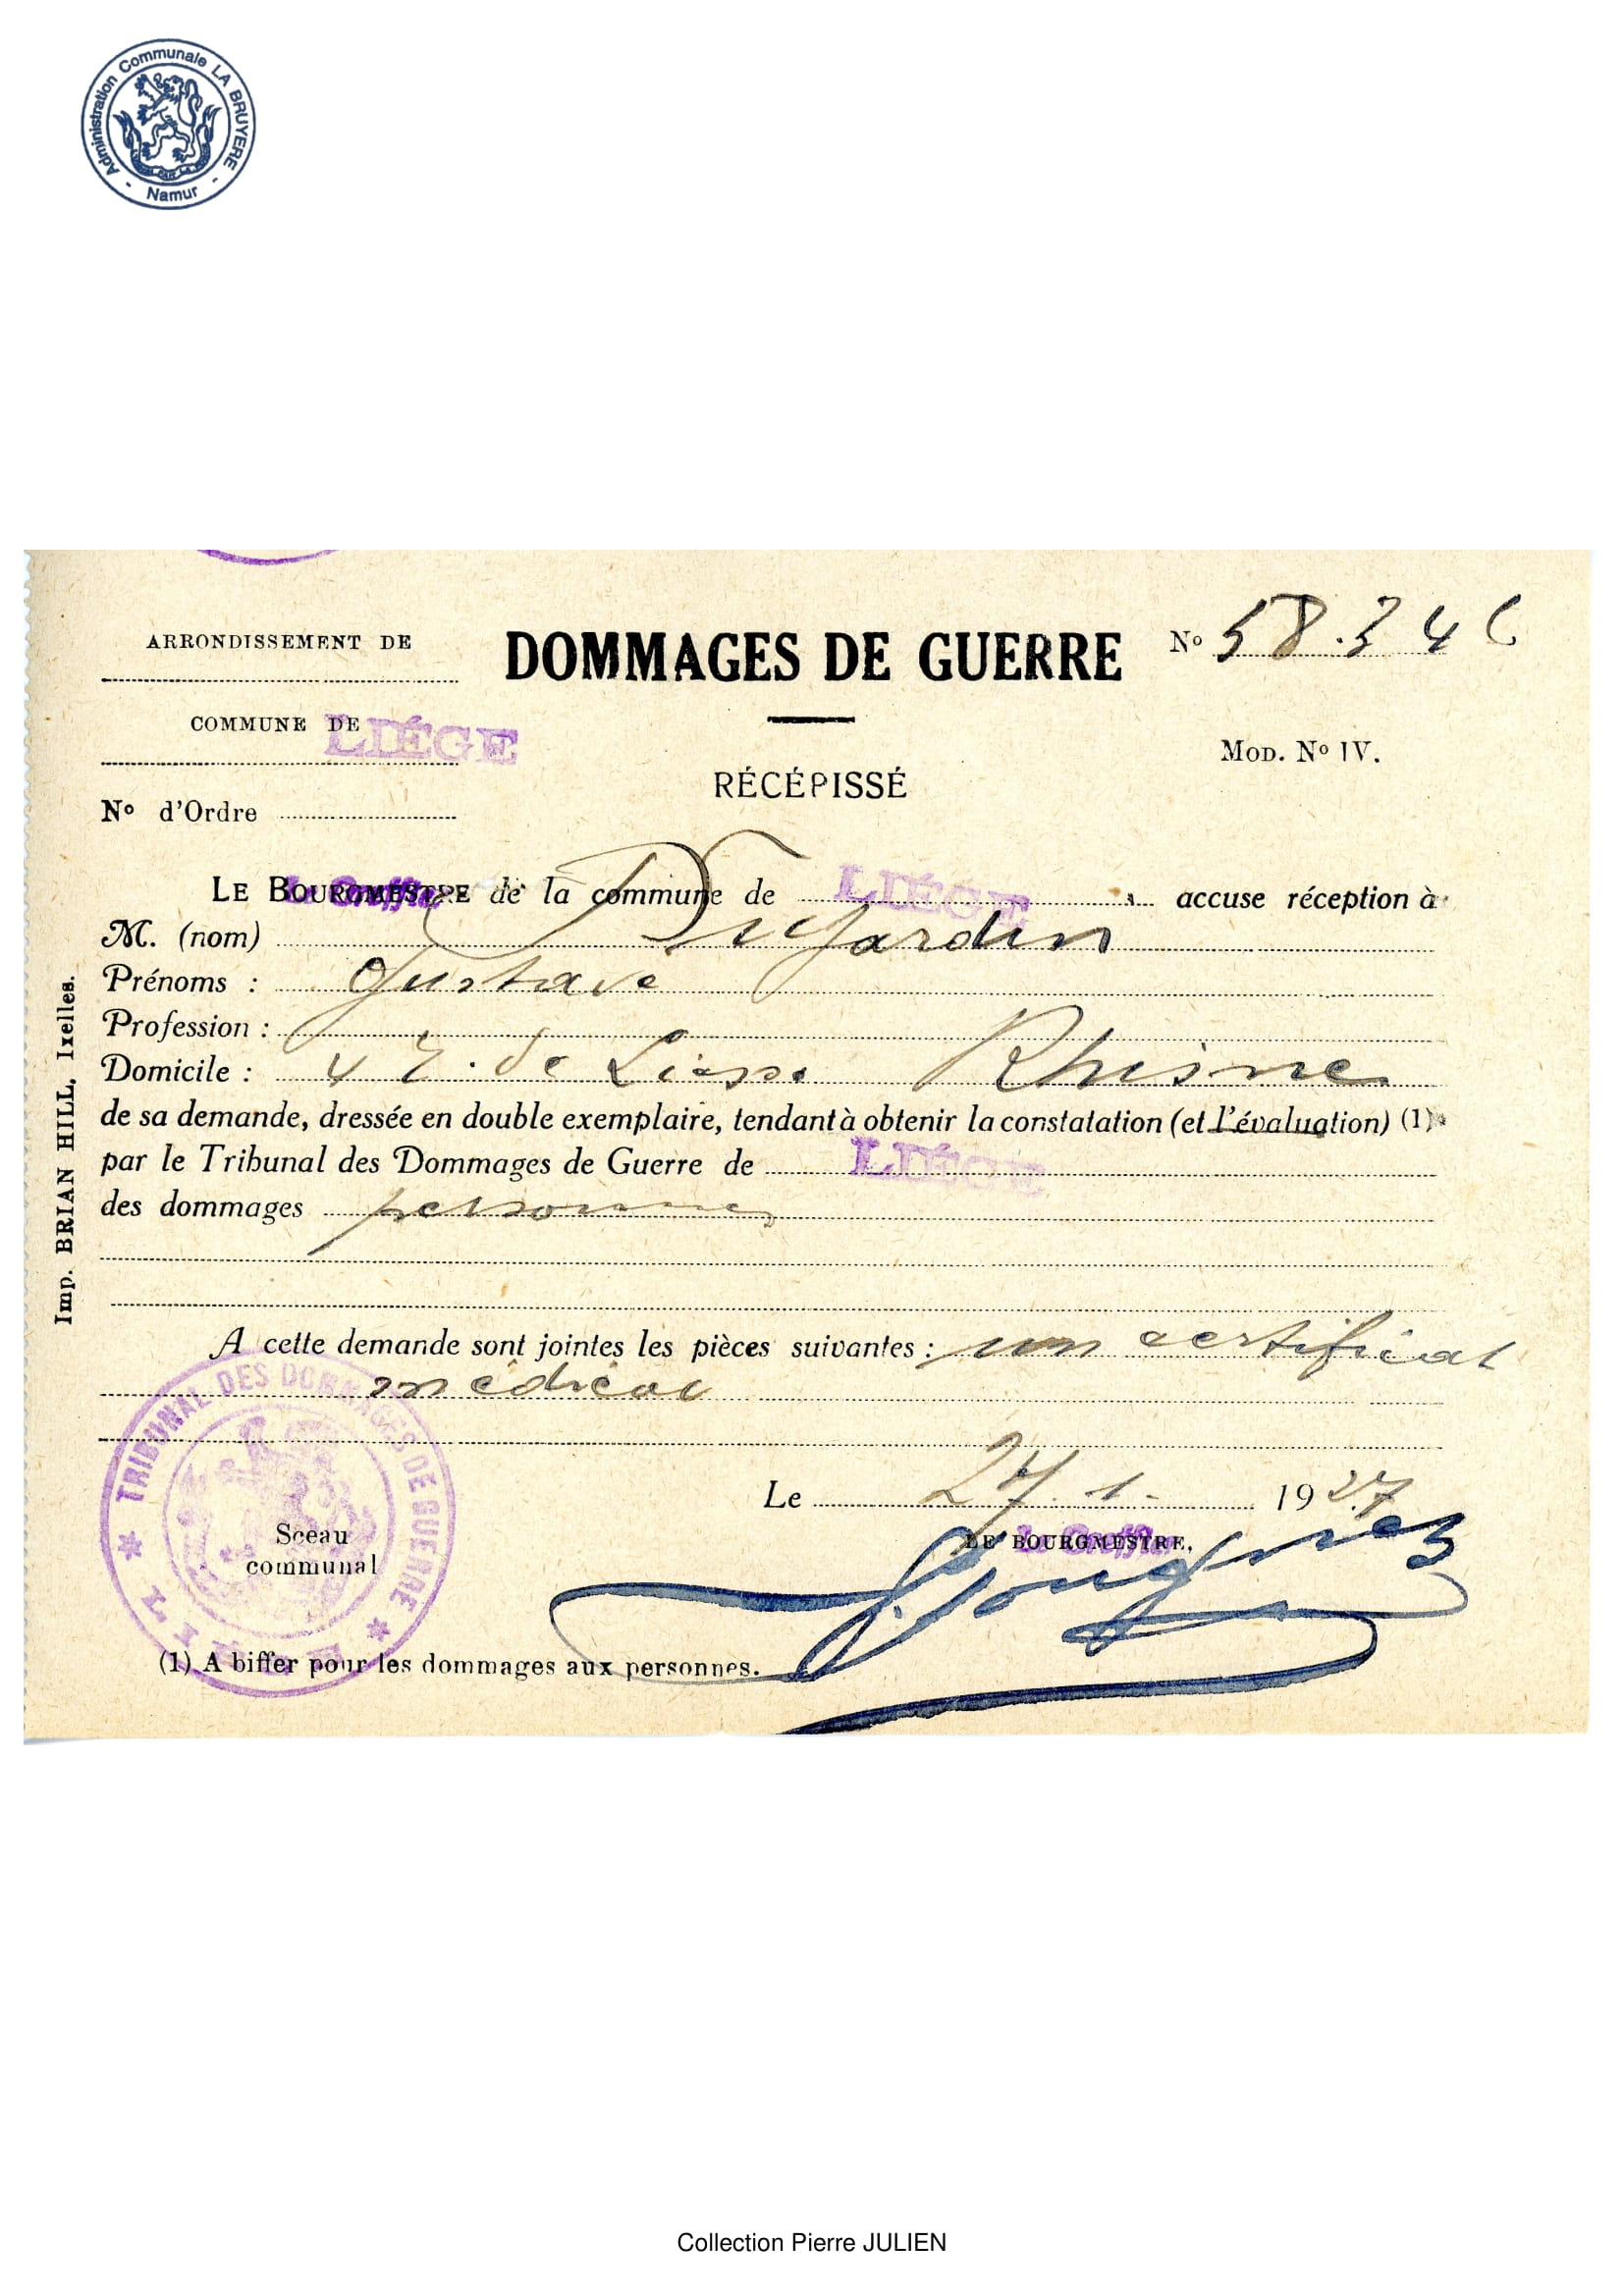 Administration Communale LA BRUYERE - Namur -
ARRONDISSEMENT DE
DOMMAGES DE GUERRE
No 58.346
COMMUNE DE LIÉGE
Mod. No IV.
RÉCÉPISSÉ
No d'Ordre
Le Bourgmestre de la commune de LIÉGE accuse réception à
Le Greffier
M. (nom) Dujardin
Prénoms : Gustave
Profession :
Domicile : 4 de Rhisne
de sa demande, dressée en double exemplaire, tendant à obtenir la constatation (et l'évaluation) (1)
par le Tribunal des Dommages de Guerre de LIÉGE
des dommages personnes
A cette demande sont jointes les pièces suivantes : un certificat
médical
Le 27.1. 1927
LE BOURGMESTRE,
Le Greffier
Sceau
communal
TRIBUNAL DES DOMMAGES DE GUERRE
(1) A biffer pour les dommages aux personnes.
Imp. BRIAN HILL, Ixelles.
Collection Pierre JULIEN